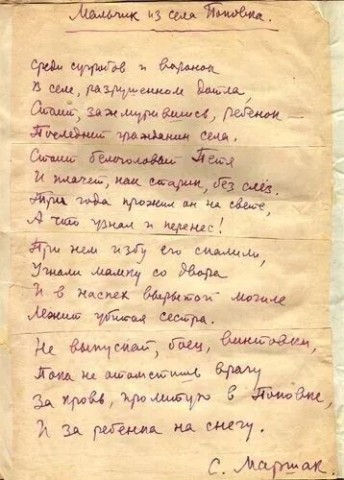 Мальчик из села Поповка.
Среди сугробов и воронок
В селе, разрушенном дотла
Стоит, зажмурившись, ребёнок —
Последний гражданин села.
Стоит белоголовый Петя
И плачет, как старик, без слёз.
Три года прожил он на свете,
А что узнал и перенес!
При нем избу его спалили,
Угнали мамку со двора
И в наспех вырытой могиле
Лежит убитая сестра.
Не выпускай, боец, винтовки,
Пока не отомстишь врагу
За кровь, пролитую в Поповке,
И за ребенка на снегу.
С. Маршак.